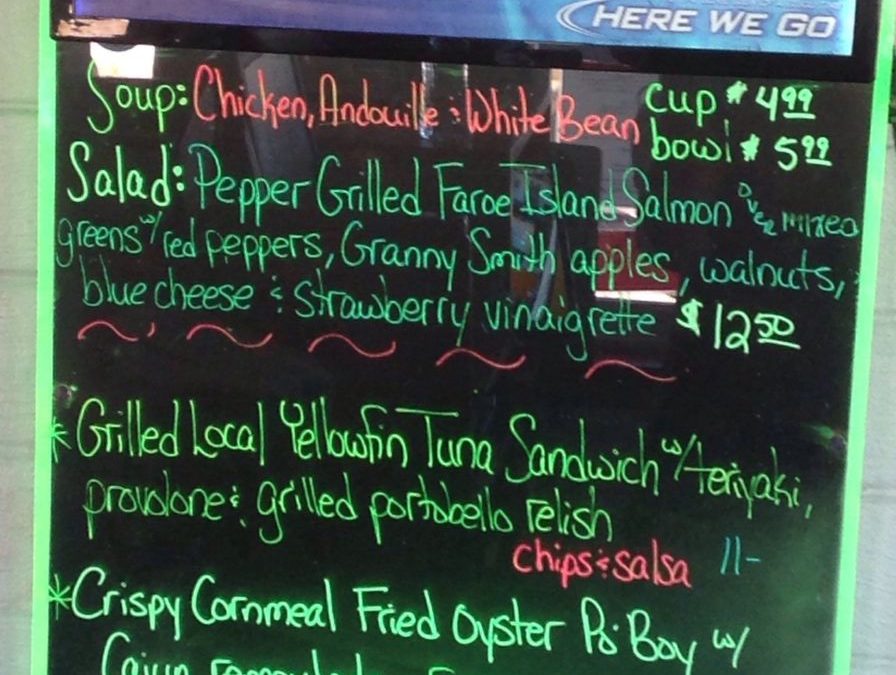 HERE WE GO
Soup: Chicken, Andouille & White Bean cup $4.99
bowl $5.99
Salad: Pepper Grilled Faroe Island Salmon over mixed
greens w/ red peppers, Granny Smith apples, walnuts,
blue cheese & strawberry vinaigrette $12.50
*Grilled Local Yellowfin Tuna Sandwich w/ teriyaki,
provolone & grilled portobello relish
chips & salsa 11-
*Crispy Cornmeal Fried Oyster Po' Boy w/
Cajun